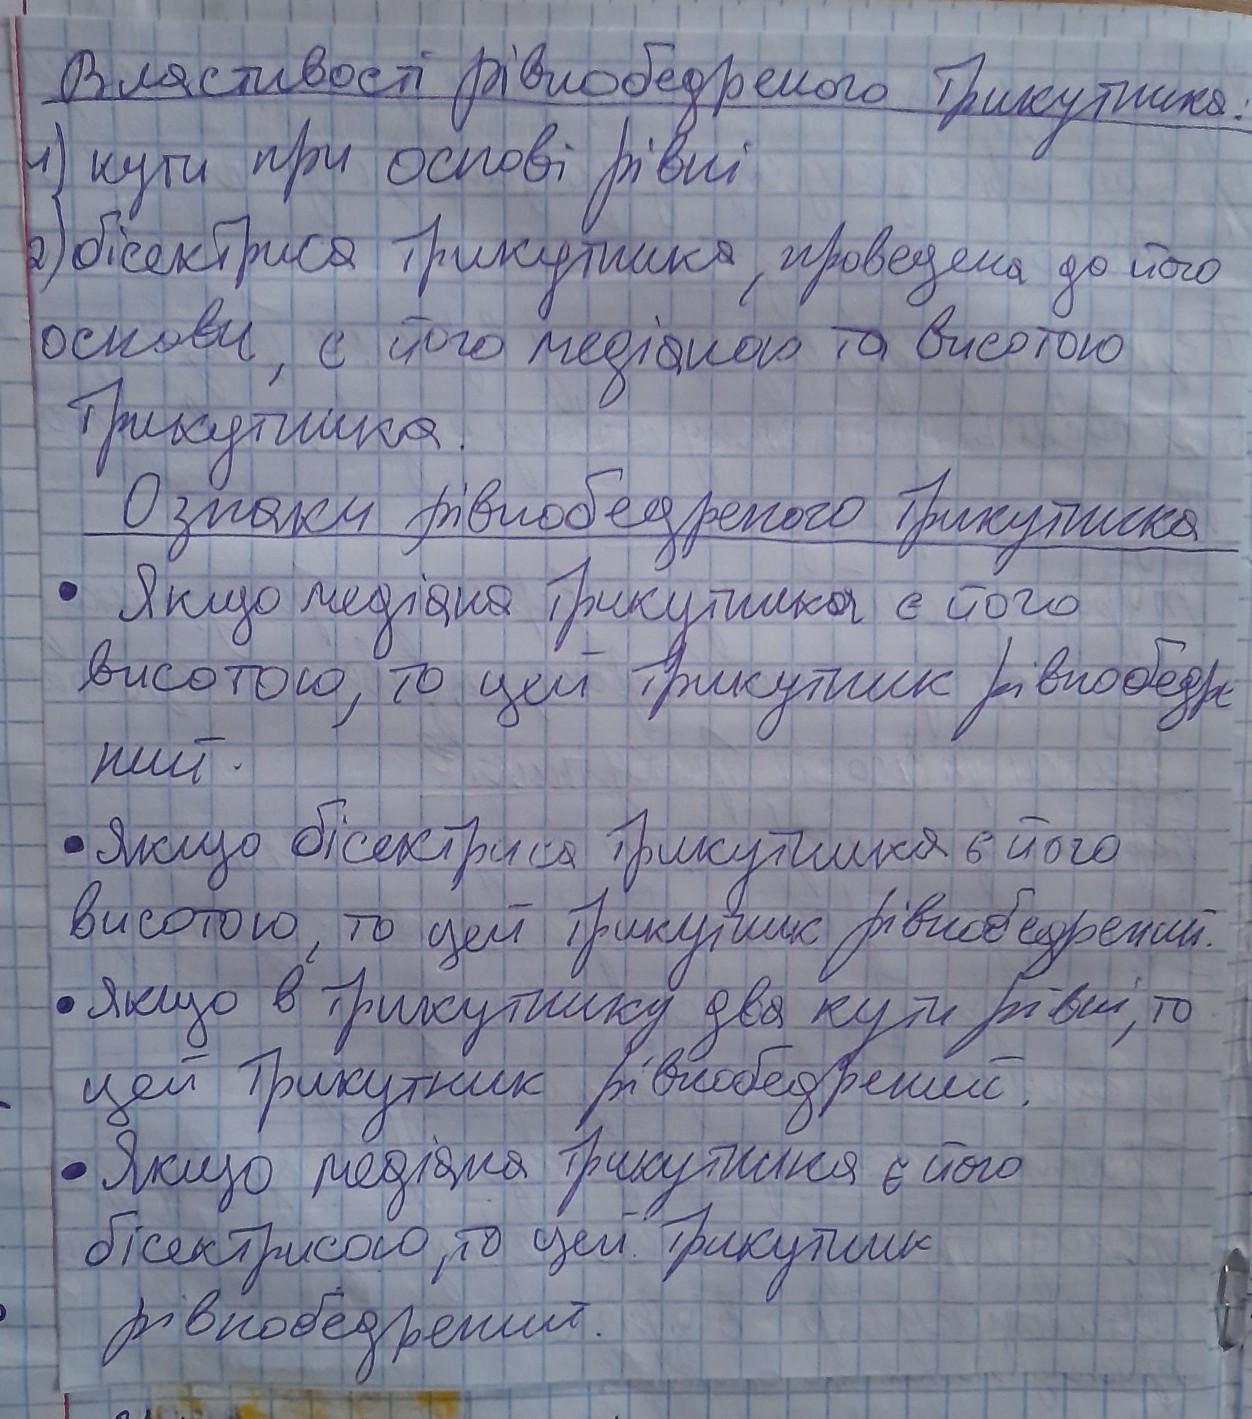 Властивості рівнобедреного трикутника:
1) кути при основі рівні
2) бісектриса трикутника, проведена до його
основи, є його медіаною та висотою
трикутника.
Ознаки рівнобедреного трикутника
• Якщо медіана трикутника є його
висотою, то цей трикутник рівнобедре
ний.
• Якщо бісектриса трикутника є його
висотою, то цей трикутник рівнобедрений.
• Якщо в трикутнику два кути рівні, то
цей трикутник рівнобедрений.
• Якщо медіана трикутника є його
бісектрисою, то цей трикутник
рівнобедрений.